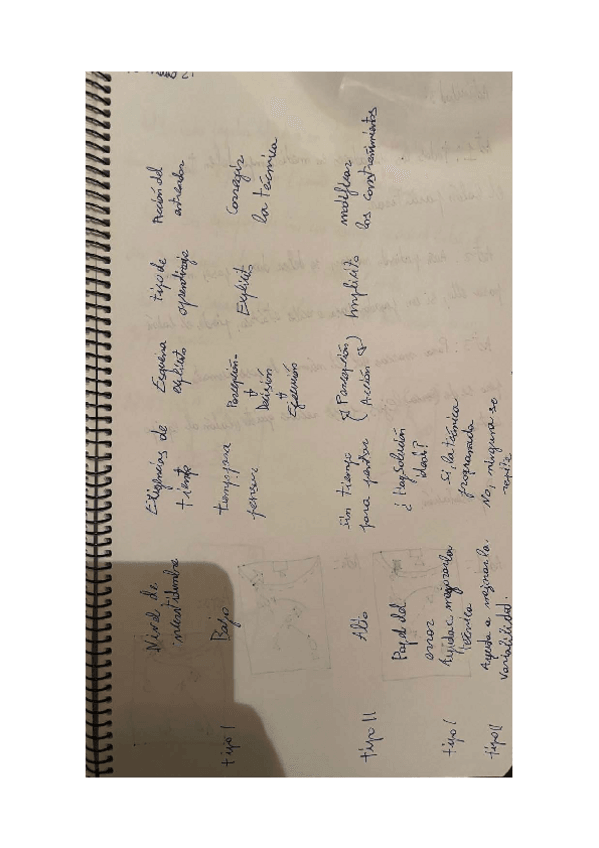 Nivel de
incertidumbre
Exigencias de
tiempo
Esquema
explícito
tipo de
aprendizaje
Acción del
entrenador
tipo I
Bajo
tiempo para
pensar
Percepción
+
Decisión
+
Ejecución
Explícito
Corregir
la técnica
tipo II
Alto
sin tiempo
para pensar
Percepción
Acción
Implícito
modificar
los constreñimientos
Papel del
error
¿Hay solución
ideal?
tipo I
Ayuda a mejorar la
técnica
Sí, la técnica
programada
tipo II
Ayuda a mejorar la
variabilidad.
No, ninguna se
repite